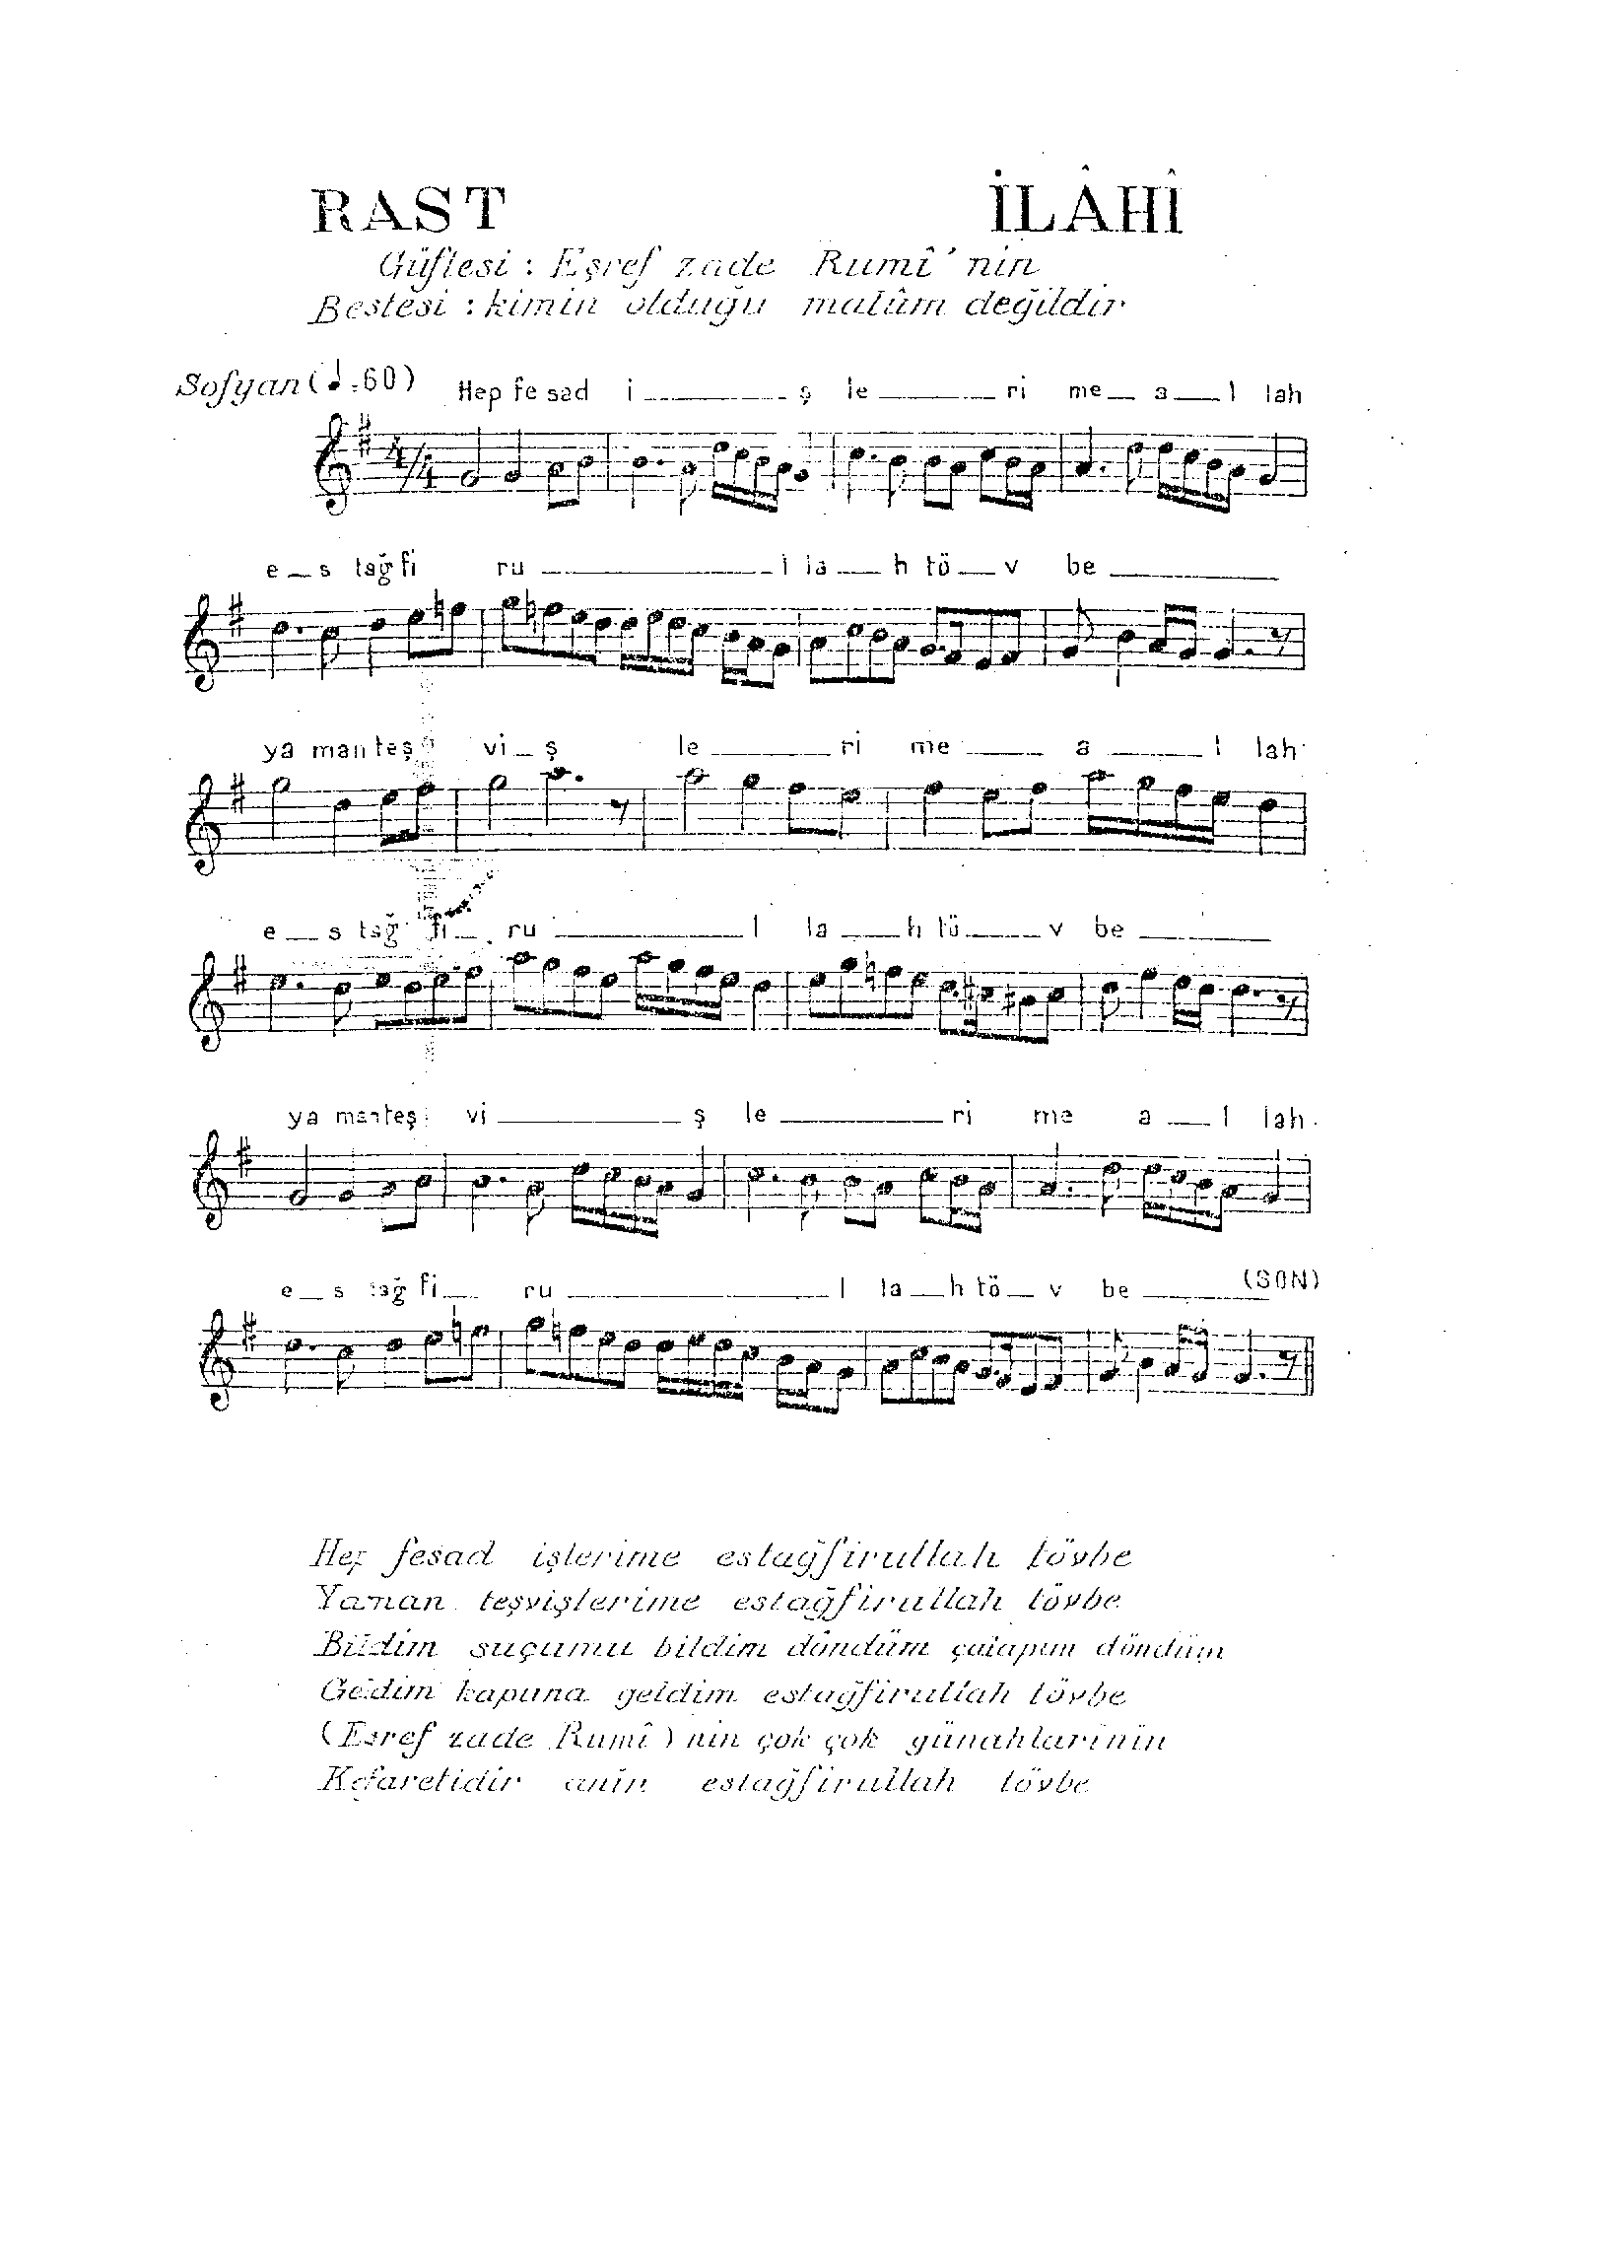 RAST İLÂHÎ
Güftesi : Eşref zade Rumî'nin
Bestesi : kimin olduğu malûm değildir
Sofyan ( ♩ = 60 ) Hep fe sad i ş le ri me a l lah
4/4
e s tağ fi ru l la h tö v be
ya man teş vi ş le ri me a l lah
e s tağ fi ru l la h tö v be
ya man teş vi ş le ri me a l lah
e s tağ fi ru l la h tö v be (SON)
Hep fesad işlerime estağfirullah tövbe
Yaman teşvişlerime estağfirullah tövbe
Bildim suçumu bildim döndüm çalapım döndüm
Geldim kapuna geldim estağfirullah tövbe
(Eşref zade Rumî) nin çok çok günahlarinin
Kefaretidir anin estağfirullah tövbe